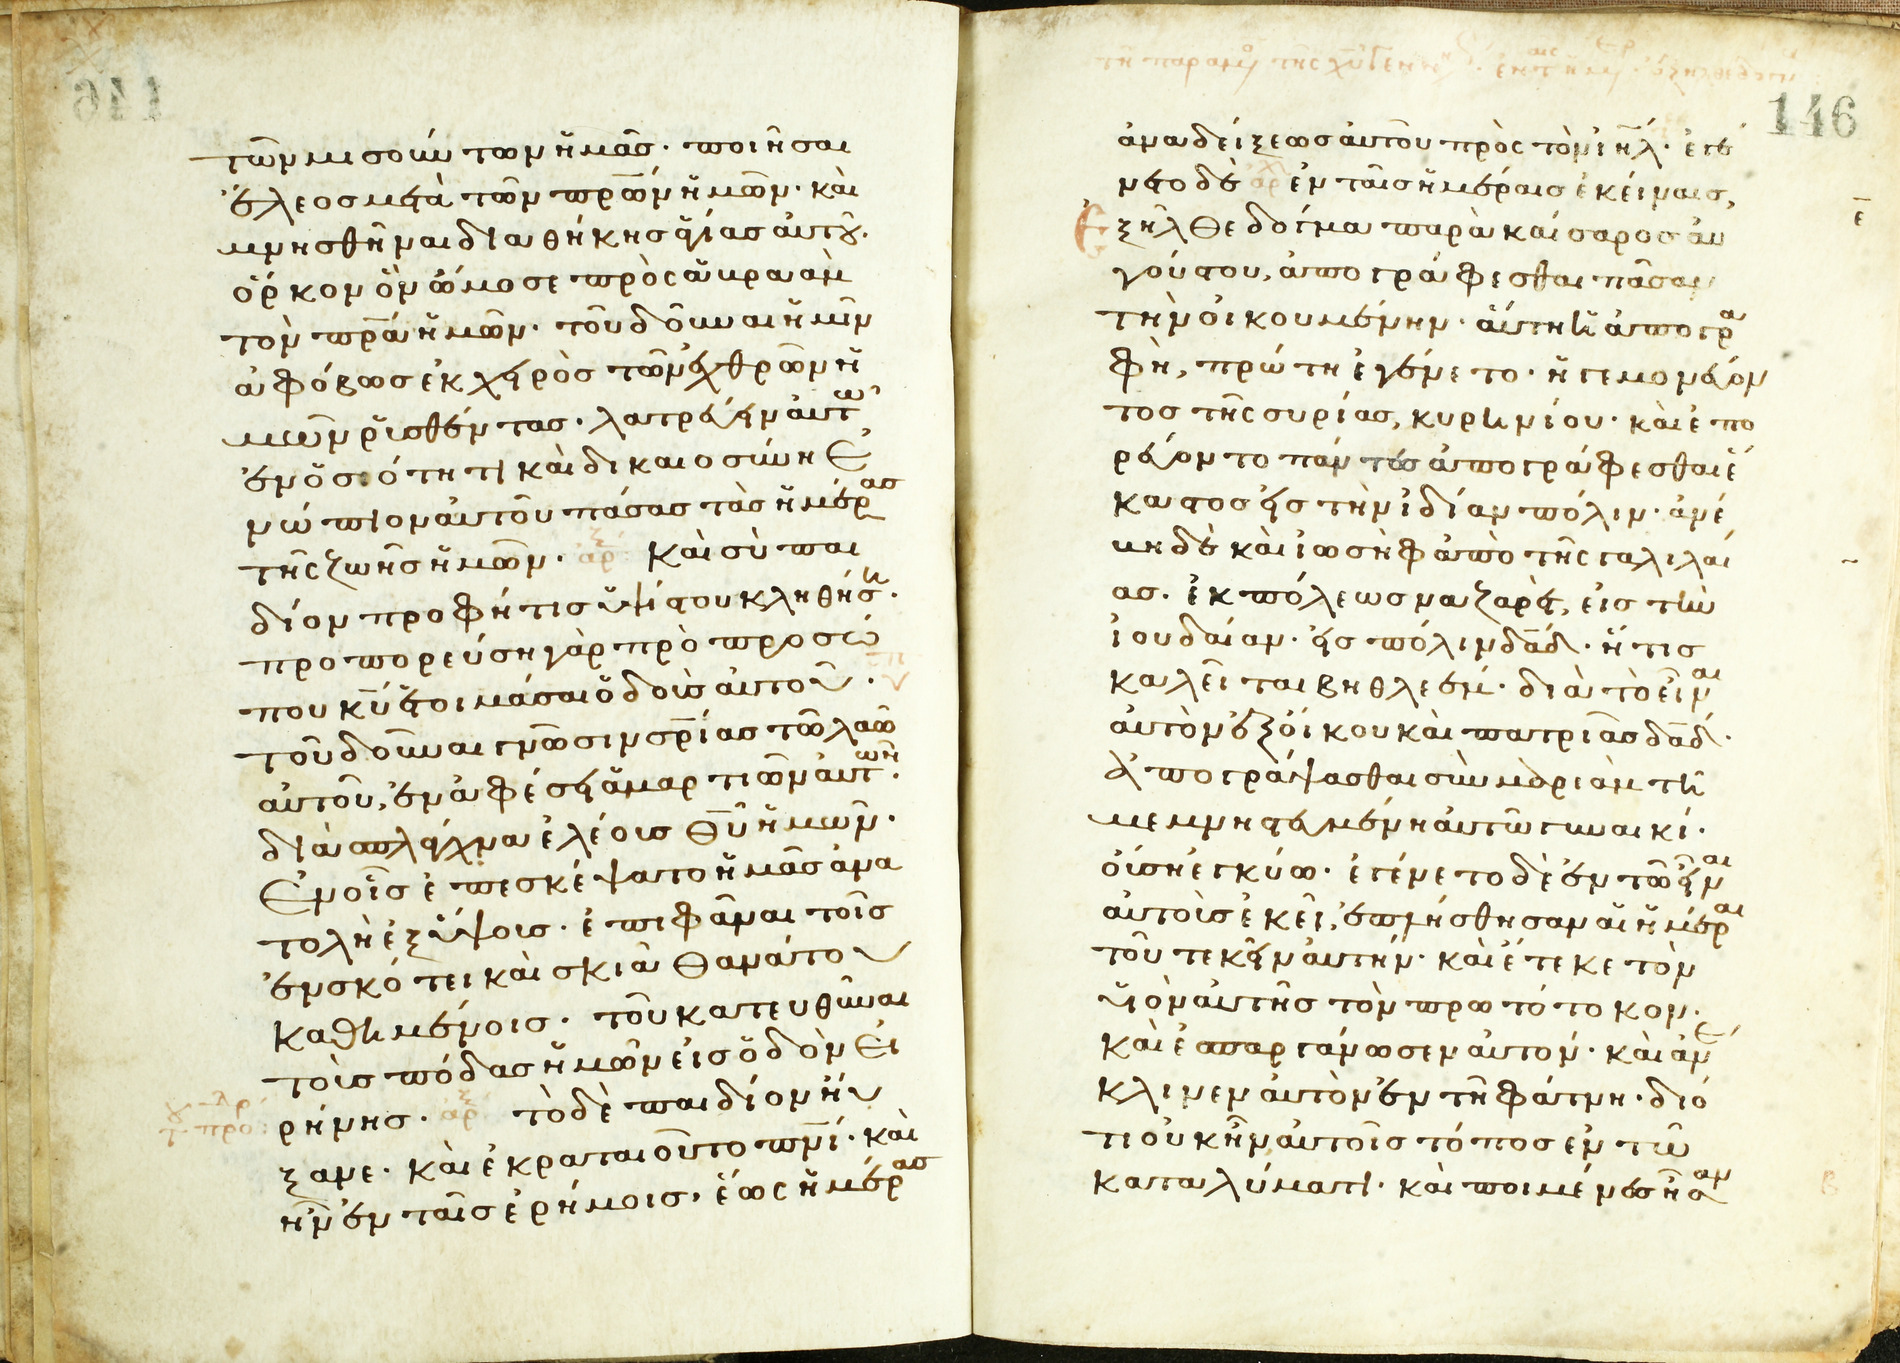 τῶν μισούντων ἡμᾶς· ποιῆσαι
ἔλεος μετὰ τῶν πρῶν ἡμῶν· καὶ
μνησθῆναι διαθήκης ἁγίας αὐτοῦ.
ὅρκον ὃν ὤμοσε πρὸς ἁβραὰμ
τὸν πρα ἡμῶν· τοῦ δοῦναι ἡμῖν
ἀφόβως ἐκ χειρὸς τῶν ἐχθρῶν ἡ
μῶν ῥυσθέντας· λατρεύειν αὐτῶ
ἐν ὁσιότητι καὶ δικαιοσύνη ἐ
νώπιον αὐτοῦ πάσας τὰς ἡμέρας
τῆς ζωῆς ἡμῶν· ἀρ καὶ σὺ παι
δίον προφήτις ὑψίστου κληθήση·
προπορεύση γὰρ πρὸ προσώ
που κυ ἑτοιμάσαι ὁδοὺς αὐτοῦ·
τοῦ δοῦναι γνῶσιν σρίας τῶ λαῶ
αὐτοῦ, ἐν ἀφέσει ἁμαρτιῶν αὐτῶν·
διὰ σπλάχνα ἐλέους θυ ἡμῶν·
ἐν οἷς ἐπεσκέψατο ἡμᾶς ἀνα
τολὴ ἐξ ὕψους· ἐπιφᾶναι τοῖς
ἐν σκότει καὶ σκιᾶ θανάτου
καθημένοις· τοῦ κατευθῦναι
τοὺς πόδας ἡμῶν εἰς ὁδὸν εἰ
ρήνης· ἀρ τὸ δὲ παιδίον ηὔ
ξανε· καὶ ἐκραταιοῦτο πνι· καὶ
ἦν ἐν ταῖς ἐρήμοις, ἕως ἡμέρας
146
ἀναδείξεως αὐτοῦ πρὸς τὸν ιηλ· ἐγέ
νετο δὲ ἀρ ἐν ταῖς ἡμέραις ἐκείναις,
ἐξῆλθε δόγμα παρὰ καίσαρος αὐ
γούστου, ἀπογράφεσθαι πᾶσαν
τὴν οἰκουμένην· αὕτη ἡ ἀπογρα
φὴ, πρώτη ἐγένετο· ἡγεμονεύον
τος τῆς συρίας, κυρηνίου· καὶ ἐπο
ρεύοντο πάντες ἀπογράφεσθαι ἕ
καστος εἰς τὴν ἰδίαν πόλιν· ἀνέ
βη δὲ καὶ ἰωσὴφ ἀπὸ τῆς γαλιλαί
ας· ἐκ πόλεως ναζαρέτ, εἰς τὴν
ἰουδαίαν· εἰς πόλιν δαδ· ἥτις
καλεῖται βηθλεέμ· διὰ τὸ εἶναι
αὐτὸν ἐξ οἴκου καὶ πατριᾶς δαδ·
ἀπογράψασθαι σὺν μαριὰμ τῆ
μεμνηστευμένη αὐτῶ γυναικί·
οὔση ἐγκύω· ἐγένετο δὲ ἐν τῶ εἶναι
αὐτοὺς ἐκεῖ, ἐπλήσθησαν αἱ ἡμέραι
τοῦ τεκεῖν αὐτήν· καὶ ἔτεκε τὸν
υἱὸν αὐτῆς τὸν πρωτότοκον·
καὶ ἐσπαργάνωσεν αὐτον· καὶ ἀνέ
κλινεν αὐτὸν ἐν τῆ φάτνη· διό
τι οὐκ ἦν αὐτοῖς τόπος ἐν τῶ
καταλύματι· καὶ ποιμένες ἦσαν